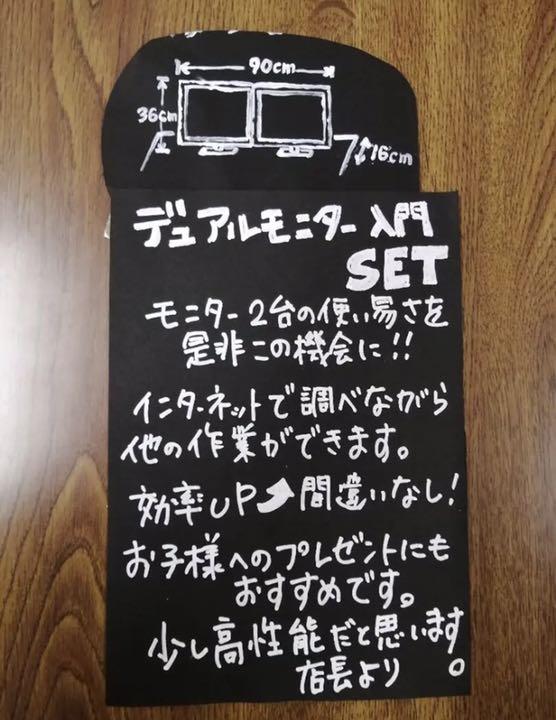 90cm
36cm
16cm
デュアルモニター入門
SET
モニター2台の使い易さを
是非この機会に!!
インターネットで調べながら
他の作業ができます。
効率UP⤴間違いなし!
お子様へのプレゼントにも
おすすめです。
少し高性能だと思います。
店長より